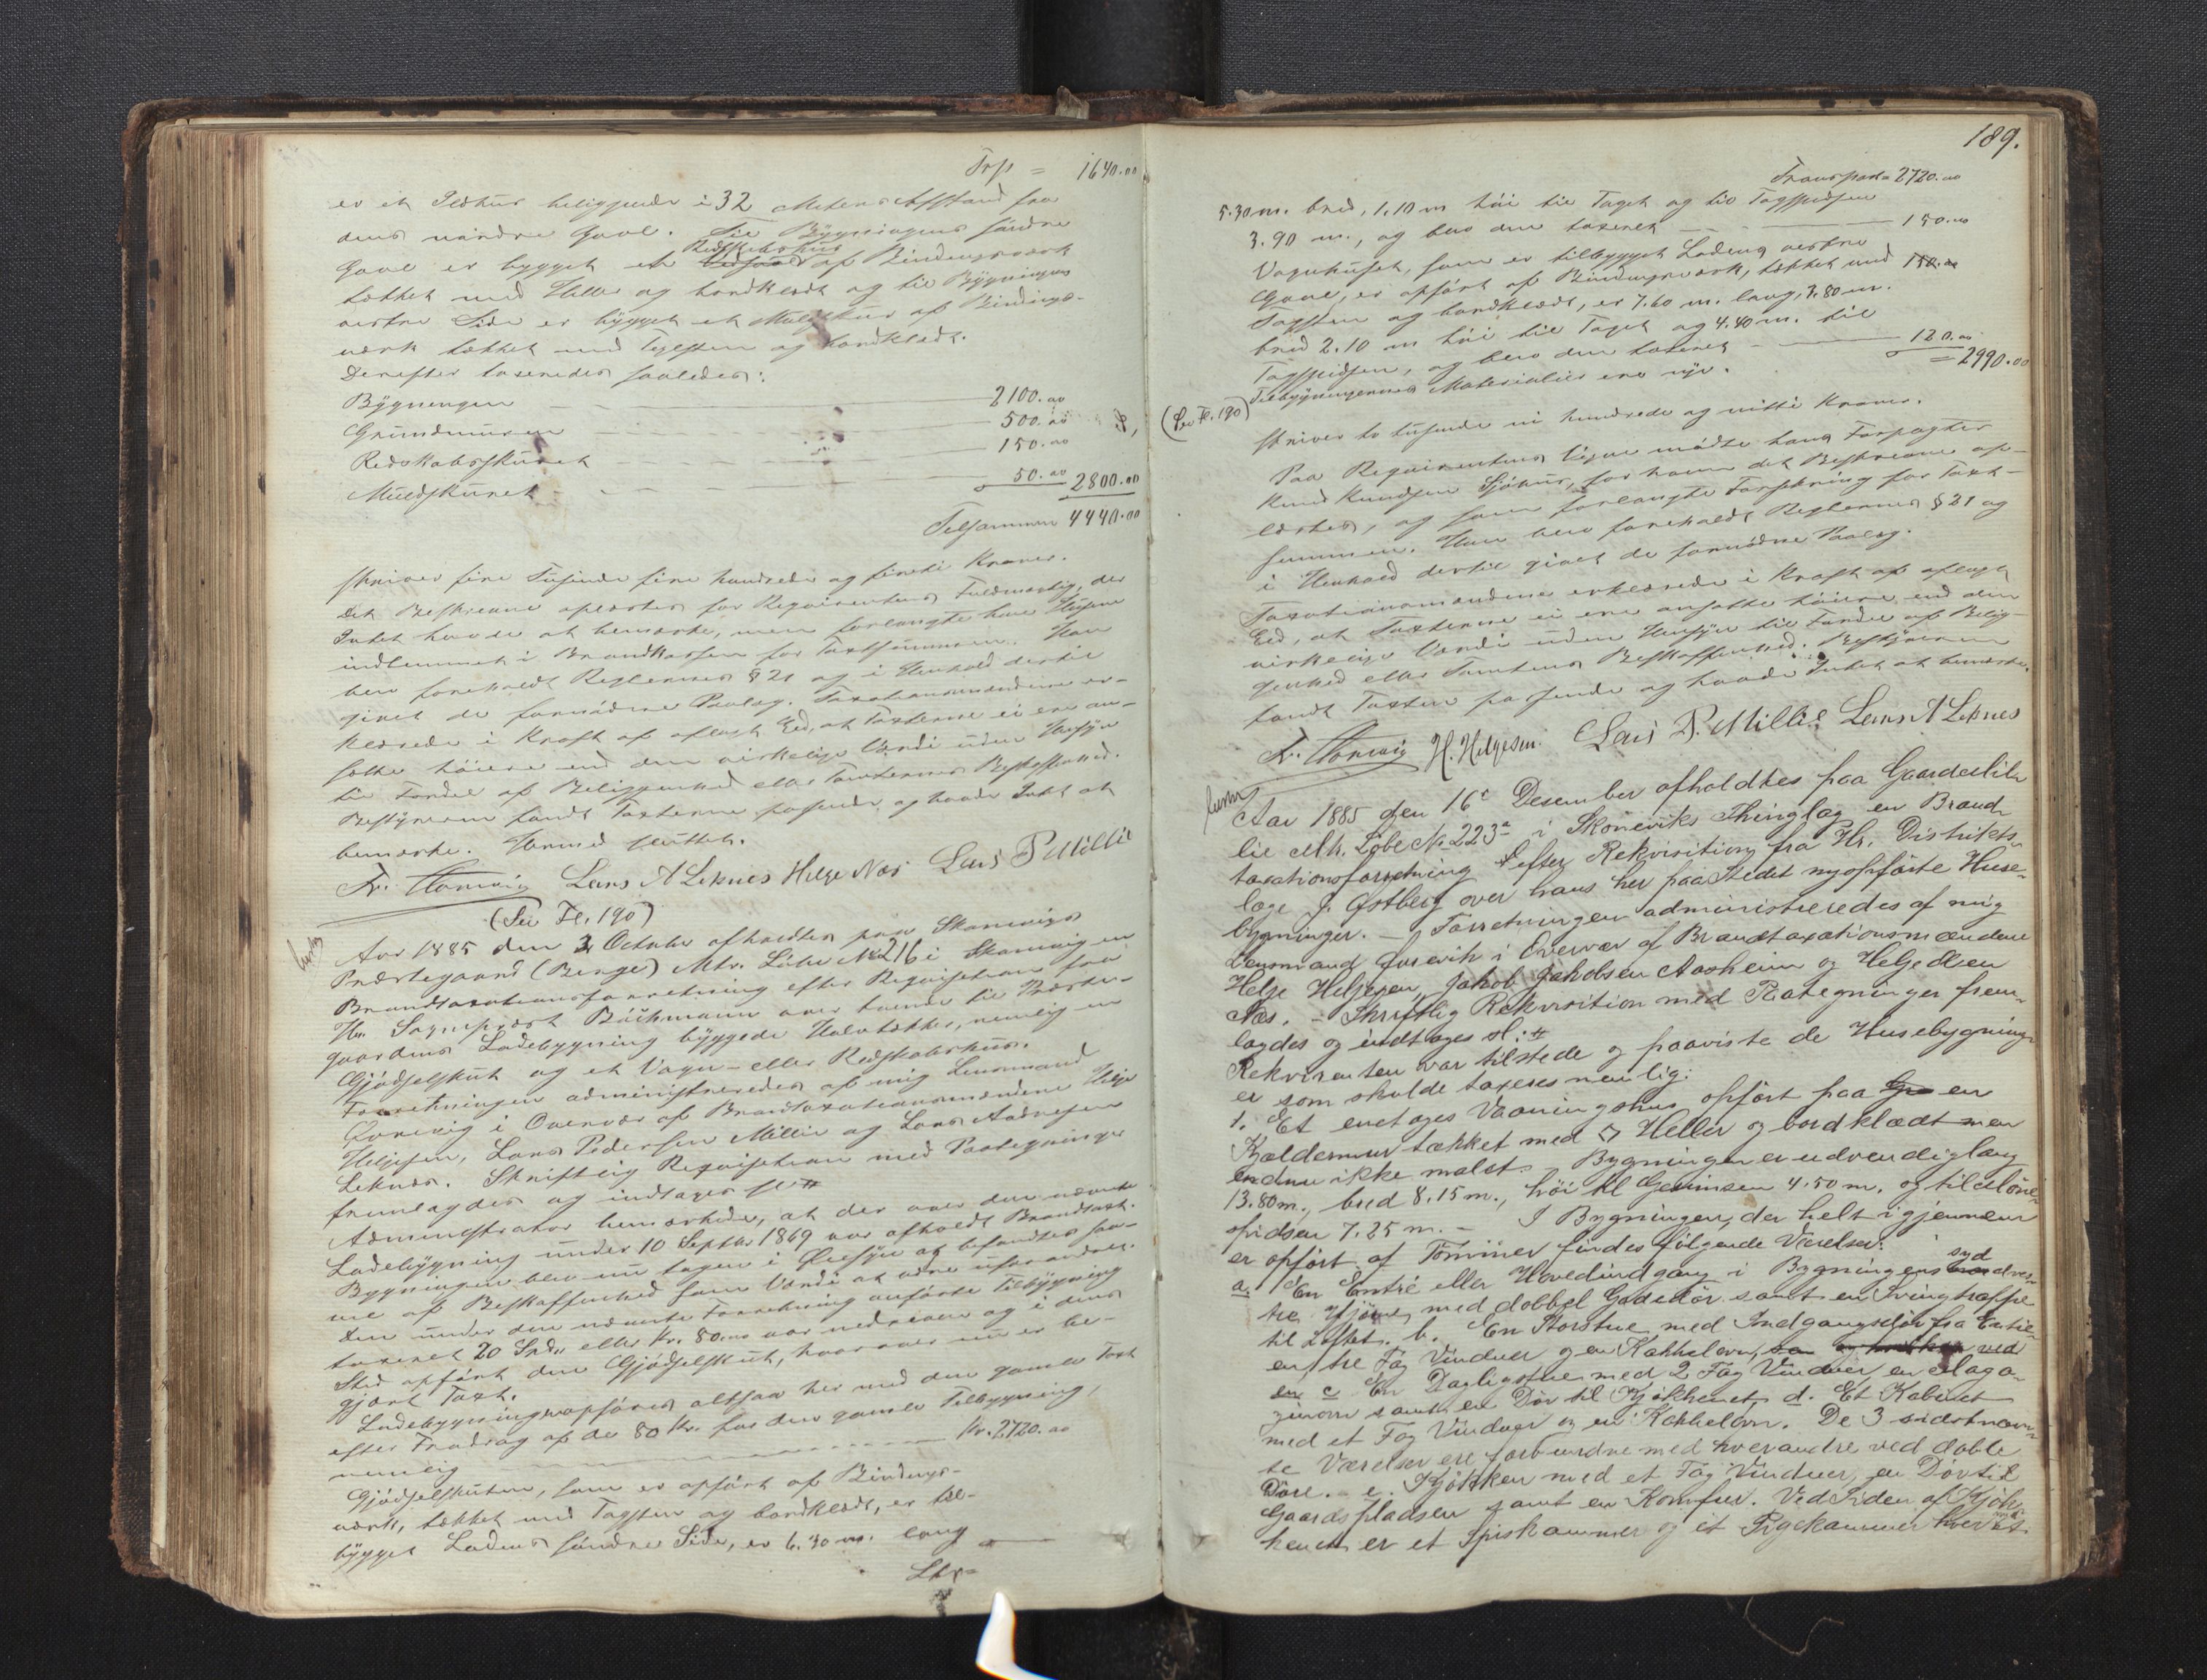 Trsp = 1640.00
er et Ildhus beliggende i 32 Meters Afstand fra
dens nordre Gavl. Til Bygningens søndre
Redskabsskur
Gavl er bygget et Vedskur af Bindingsværk
tækket med Heller og bordklædt og til Bygningens
vestre Side er bygget et Muldskur af Bindings-
værk tækket med Teglsten og bordklædt.
Derefter taxeredes saaledes:
Bygningen 2100.00
Grundmuren 500.00
Redskabsskuret 150.00
Muldskuret 50.00 2800.00
Tilsammen 4440.00
skriver fire Tusinde fire hundrede og firti Kroner.
Det Beskrevne oplæstes for Requirentens Fuldmægtig, der
Intet havde at bemærke, men forlangte hans Husene
indlemmet i Brandkassen for Taxtsummen. Han
blev foreholdt Reglernes § 21 og i Henhold dertil
givet de fornødne Paalæg. Taxationsmændene er-
klærede i Kraft af aflagt Eed, at Taxterne ei ere an-
satte høiere end den virkelige Værdi uden Hensyn
til Fordel af Beliggenhed eller Tomternes Beskaffenhed.
Bestyreren fandt Taxterne passende og havde Intet at
bemærke. Hermed sluttet.
Fr. Lars A Leknes Helge Næs Lars P Millie
(Sei Fl. 190)
Aar 1885 den 3 October afholdtes paa Skonevigs
Præstegaard (Berge) Mtr. Løbe No 216 i Skonevig en
Brandtaxationsforretning efter Requisition fra
Hr. Sognepræst Bøchmann over tvende til Præste-
gaardens Ladebygning byggede Halvtækker, nemlig en
Gjødselskut og et Vogn- eller Redskabshus.
Forretningen administreredes af mig Lensmand
i Overvær af Brandtaxationsmændene Helge
Helgesen, Lars Pedersen Millie og Lars Andresen
Leknes. Skriftlig Requisition med Paategninger
fremlagdes og indtages sl. #
Administrator bemærkede, at der over den nævnte
Ladebygning under 10 Septbr 1869 var afholdt Brandtaxt.
Bygningen blev nu tagen i Øiesyn og befandtes saa-
vel af Beskaffenhed som Værdi at være uforandret.
Den under den nævnte Forretning anførte Tilbygning
taxeret 20 Spd. eller Kr. 80.00 var nedreven og i dens
Sted opført den Gjødselskut, hvorover nu er be-
gjært Taxt.
Ladebygningen opføres altsaa her med den gamle Taxt
efter Fradrag af de 80 Kr. for den gamle Tilbygning,
nemlig Kr. 2720.00
Gjødselskuten, som er opført af Bindings-
værk, tækket med Tagsten og bordklædt, er til-
bygget Ladens søndre Side, er 6.30 m. lang
189.
Transport = 2720.00
5.30 m. bred, 1.10 m høi til Taget og til Tagspidsen
3.90 m., og blev den taxeret 150.00
Vognhuset, som er tilbygget Ladens vestre
Gavl, er opført af Bindingsværk, tækket med 150.00
Tagsten og bordklædt, er 7.60 m. lang, 3.80 m.
bred 2.10 m høi til Taget og 4.40 m. til
Tagspidsen, og blev den taxeret 120.00
= 2990.00
Tilbygningernes Materialier ere nye.
(Sei Fl. 190)
skriver to tusinde ni hundrede og nitti Kroner.
Paa Requirentens Vegne mødte hans Forpagter
Knud Knudsen Sjøhus, for hvem det Beskrevne op-
læstes, og som forlangte Forsikring for Taxt-
summen. Han blev foreholdt Reglernes § 21 og
i Henhold dertil givet de fornødne Paalæg.
Taxationsmændene erklærede i Kraft af aflagt
Eed, at Taxterne ei ere ansatte høiere end den
virkelige Værdi uden Hensyn til Fordel af Belig-
genhed eller Tomtens Beskaffenhed. Bestyreren
fandt Taxten passende og havde Intet at bemærke.
Fr. H. Helgesen. Lars P. Millie Lars A Leknes
Aar 1885 den 16de Desember afholdtes paa Gaarden Lil
lie Mtr. Løbe No 223a i Skoneviks Thinglag en Brand
taxationsforretning efter Rekvisition fra Hr. Distrikts-
læge J. Østberg over hans her paa Stedet nyopførte Huse-
bygninger. – Forretningen administreredes af mig
Lensmand i Overvær af Brandtaxationsmændene
Helje Heljesen, Jakob Jakobsen Aasheim og Helje Olsen
Næs. – Skriftlig Rekvisition med Paategninger frem-
lagdes og indtages sl. #
Rekvirenten var tilstede og paaviste de Husebygning-
er som skulde taxeres nemlig:
1. Et enetages Vaaningshus opført paa en
Kjeldermur tækket med Heller og bordklædt men
endnu ikke malet. Bygningen er udvendig lang
13.80 m., bred 8.15 m., høi til Gesimsen 4.50 m. og til Møne-
spidsen 7.25 m. – I Bygningen, der helt igjennem
er opført af Tømmer findes følgende Værelser:
a. En Entré eller Hovedindgang i Bygningens sydves-
tre Hjørne, med dobbel Gadedør samt en Svingtrappe
til Loftet. b. En Storstue med Indgangsdør fra Entre-
en, tre Fag Vinduer og en Kakkelovn, ved
c En Dagligstue med 2 Fag Vinduer, en Maga-
zinovn samt en Dør til Kjøkkenet, d. Et Kabinet
med et Fag Vinduer og en Kakkelovn. De 3 sidstnævn-
te Værelser ere forbundne med hverandre ved doble
Døre. – e. Kjøkken med et Fag Vinduer, en Dør til
Gaardspladsen samt en Komfur. Ved Siden af Kjøk-
kenet er et Spiskammer og et Pigekammer hver